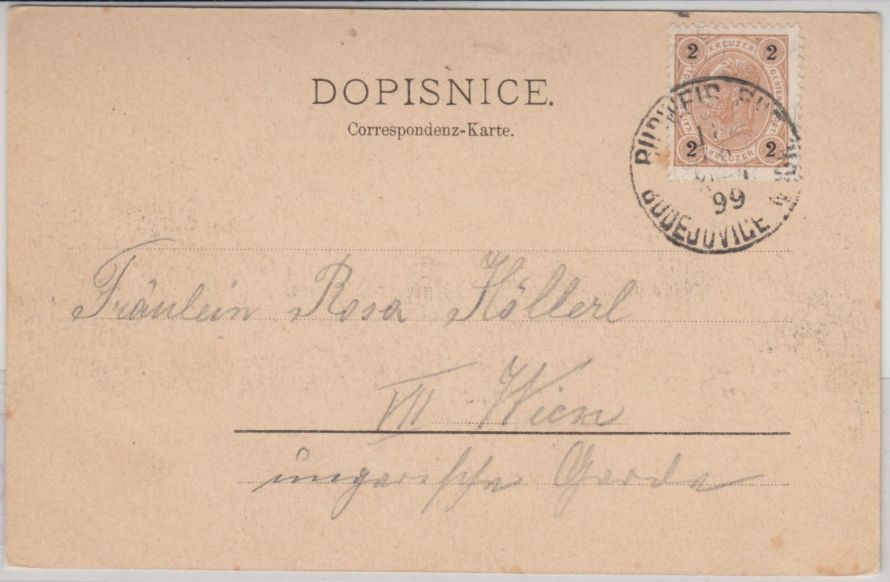 DOPISNICE.
Correspondenz-Karte.
2 KREUZER 2
2 KREUZER 2
BUDWEIS
99
BUDEJOVICE
Fräulein Rosa Höllerl
VII Wien
ungarische Garde